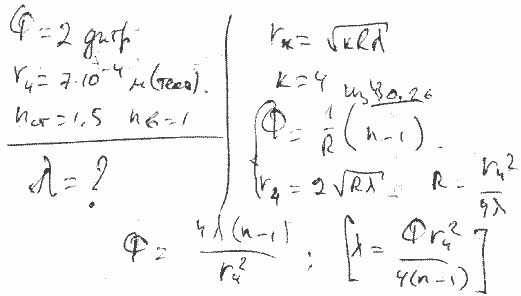 Φ = 2 дптр
r₄ = 7·10⁻⁴ м (тёмн).
nст = 1,5 nв = 1
λ = ?
rк = √kRλ
k = 4 из 30.26
Φ = 1/R (n-1).
r₄ = 2√Rλ R = r₄²/4λ
Φ = 4λ(n-1)/r₄² ; [λ = Φr₄²/4(n-1)]